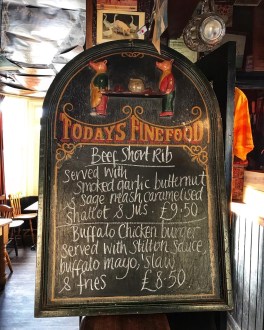 TODAYS FINE FOOD
Beef Short Rib
served with
smoked garlic butternut
& sage mash, caramelised
shallot & jus. £9.50
Buffalo Chicken burger
served with Stilton sauce,
buffalo mayo, 'slaw
& fries £8.50